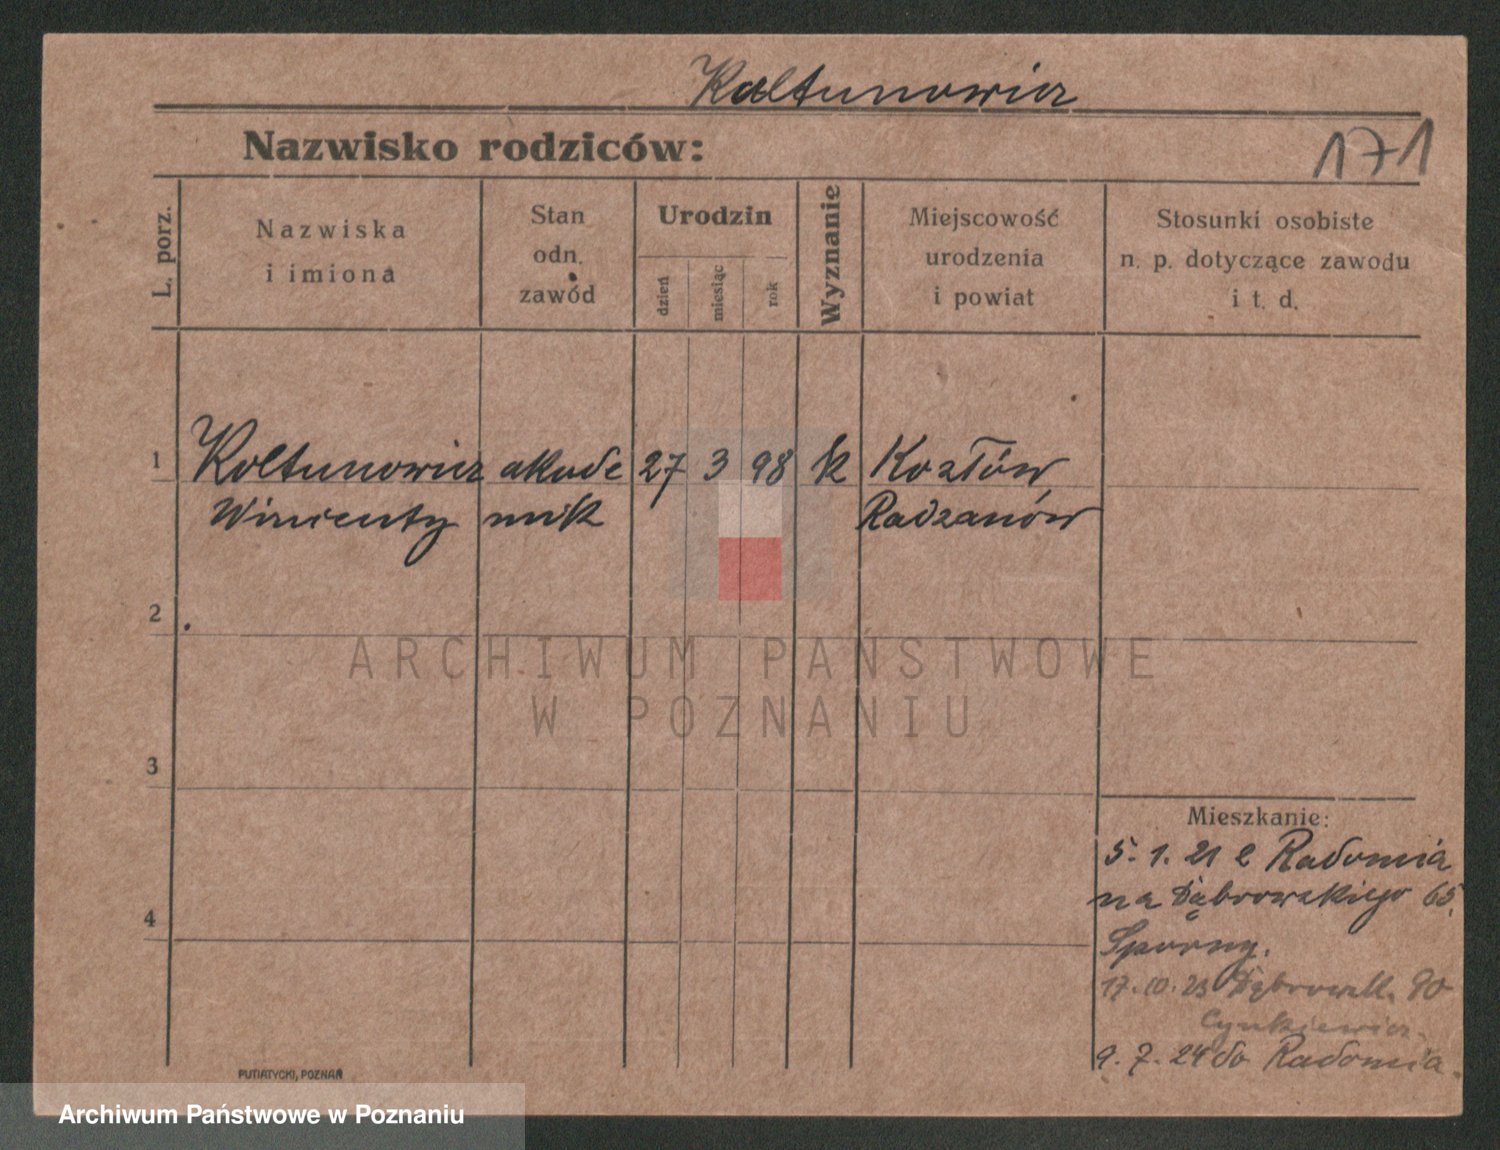 Kołtunowicz
Nazwisko rodziców:
171
L. porz.
Nazwiska
i imiona
Stan
odn.
zawód
Urodzin
dzień
miesiąc
rok
Wyznanie
Miejscowość
urodzenia
i powiat
Stosunki osobiste
n. p. dotyczące zawodu
i t. d.
1 Kołtunowicz akade 27 3 98 k Kozłów
Wincenty mik Radzanów
2
ARCHIWUM PAŃSTWOWE
W POZNANIU
3
Mieszkanie:
5. 1. 21 z Radomia
na Dąbrowskiego 65
4
Sporny.
17. 10. 23 Dąbrowsk. 80
9. 7. 24 do Radomia.
PUTIATYCKI, POZNAŃ
Archiwum Państwowe w Poznaniu